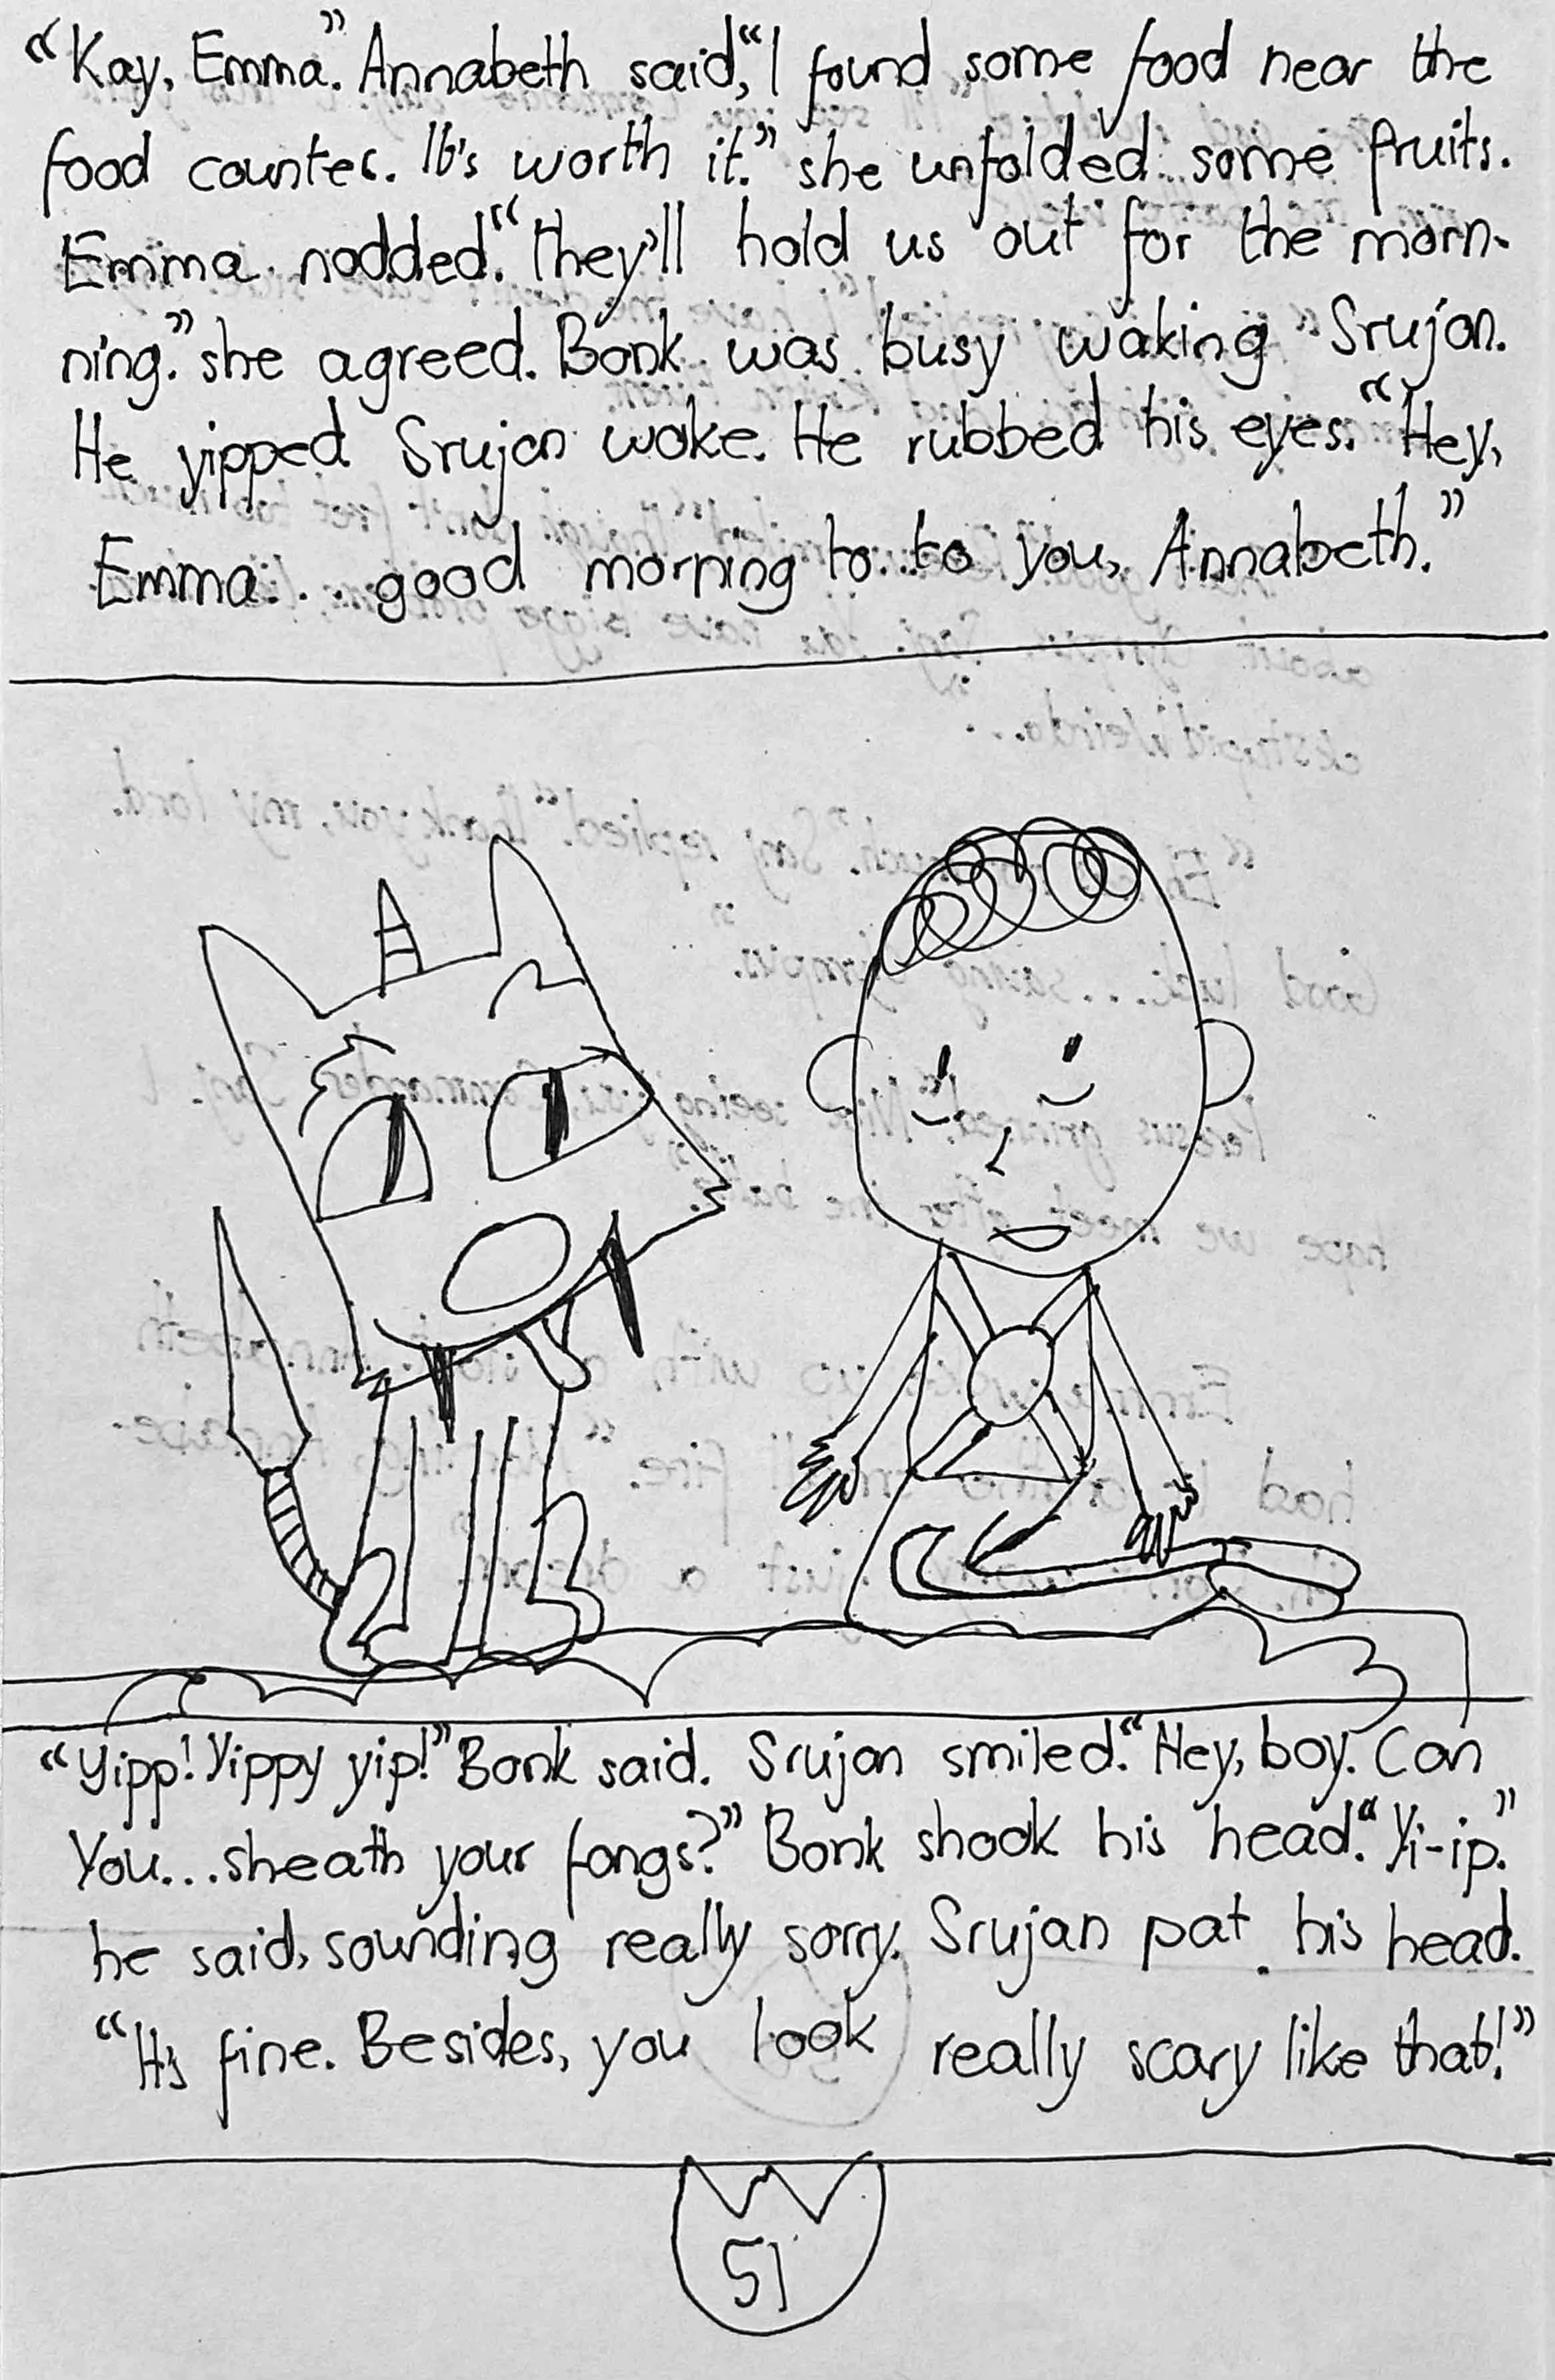 “Kay, Emma.” Annabeth said, “I found some food near the
food counter. It's worth it.” she unfolded some fruits.
Emma nodded. “They'll hold us out for the morn-
ning.” she agreed. Bonk was busy waking Srujan.
He yipped Srujan woke. He rubbed his eyes. “Hey,
Emma... good morning to.. to you, Annabeth.”
“Yipp! Yippy yip!” Bonk said. Srujan smiled. “Hey, boy. Can
You...sheath your fangs?” Bonk shook his head. “Yi-ip.”
he said, sounding really sorry. Srujan pat his head.
“It's fine. Besides, you look really scary like that!”
51